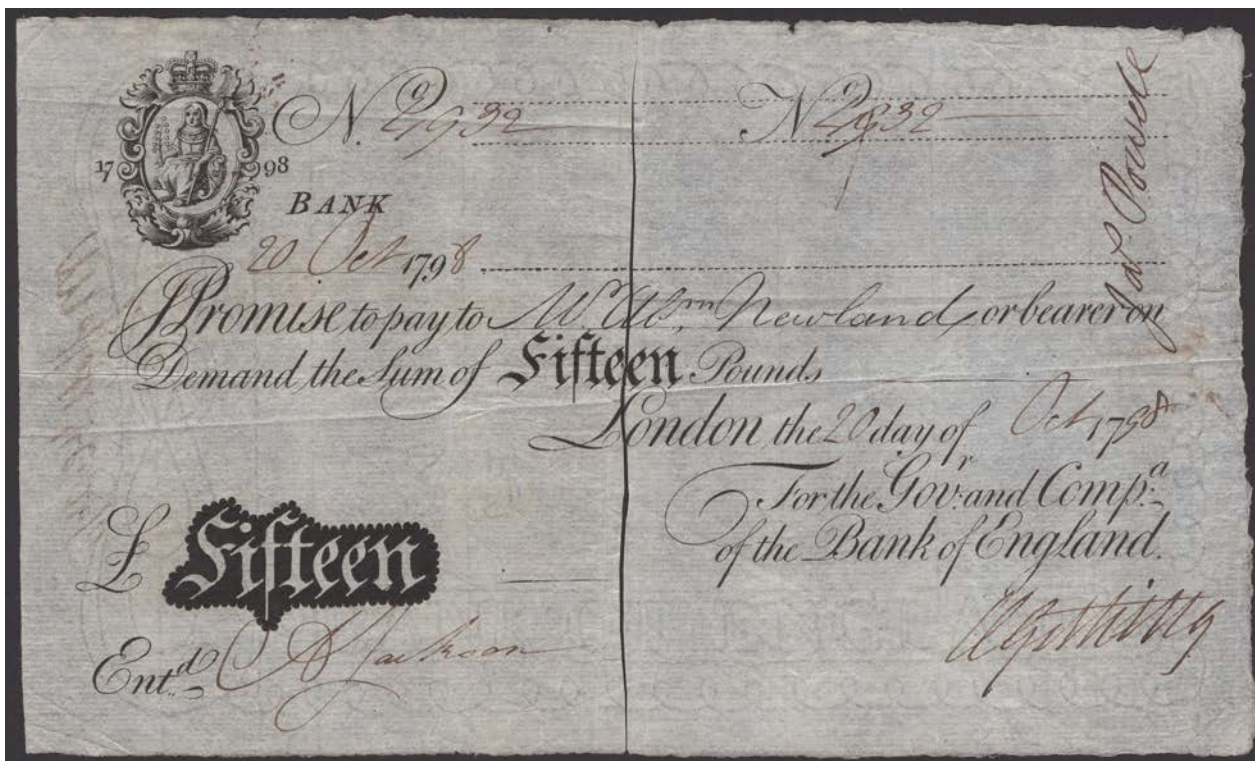 No. 2932 No 2932
17 98
BANK
20 Oct 1798
I Promise to pay to Mr. Abm. Newland, or bearer on
Demand the Sum of Fifteen Pounds
London the 20 day of Oct 1798
For the Govr. and Compa.
of the Bank of England.
£ Fifteen
Entd. Jackson
Powell